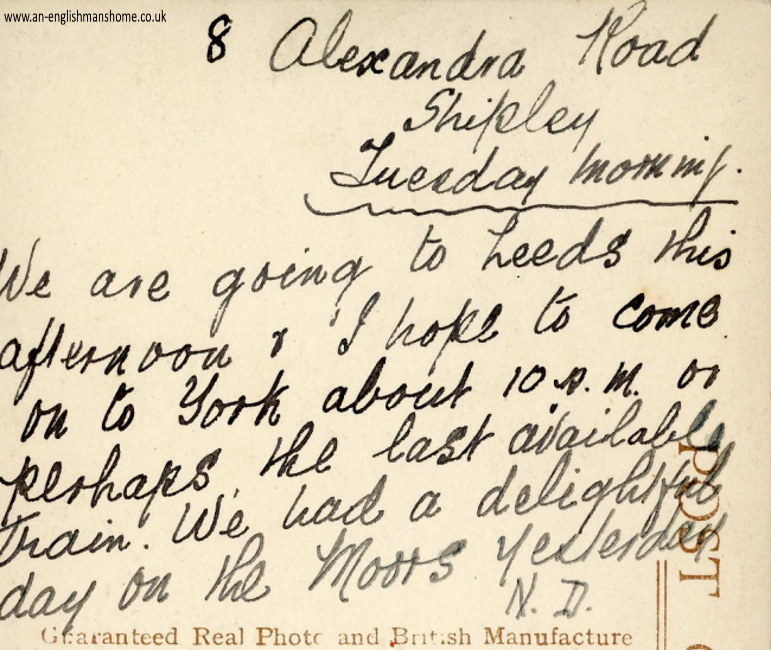 www.an-englishmanshome.co.uk
8 Alexandra Road
Shipley
Tuesday morning.
We are going to Leeds this
afternoon & I hope to come
on to York about 10 p.m. or
perhaps the last available
train. We had a delightful
day on the Moors yesterday
N. D.
Guaranteed Real Photo and British Manufacture
POST